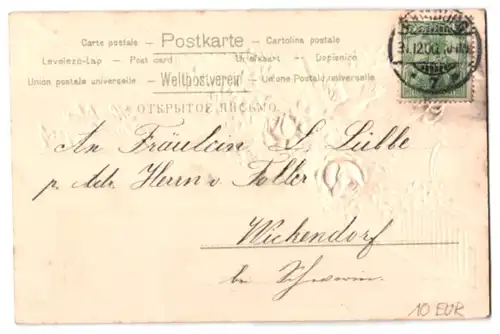 Carte postale – Postkarte – Cartolina postale
Levelező-Lap – Post card Dopisnice
Union postale universelle – Weltpostverein – Unione Postale universelle
ОТКРЫТОЕ ПИСЬМО.
31.12.00.
An Fräulein L. Lübbe
p. Adr. Herrn v. Toller
Wickendorf
bei Schwerin.
10 EUR